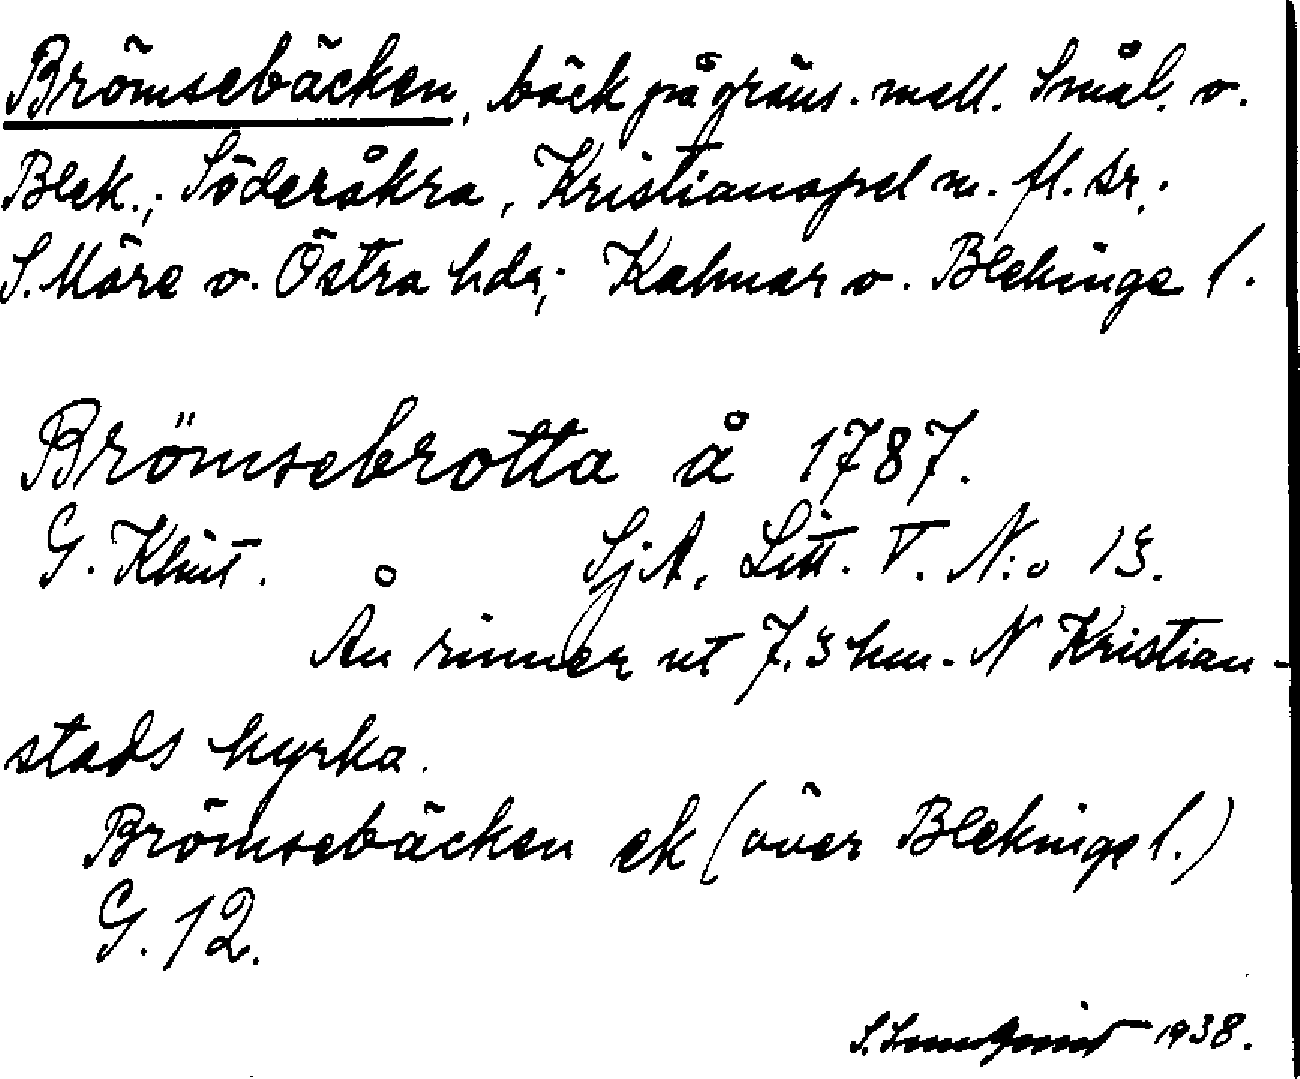 Brömsebäcken, bäck på gräns. mell. Smål. o.
Blek.; Söderåkra, Kristianopel m. fl. sr.;
S. Möre o. Östra hdr; Kalmar o. Blekinge l.
Brömsebrotta å 1787.
G. Klint. SjA, Litt. V. N:o 13.
Ån rinner ut 7.3 km. N Kristian-
stads kyrka.
Brömsebäcken ek (över Blekinge l.)
G. 12.
S. 1938.